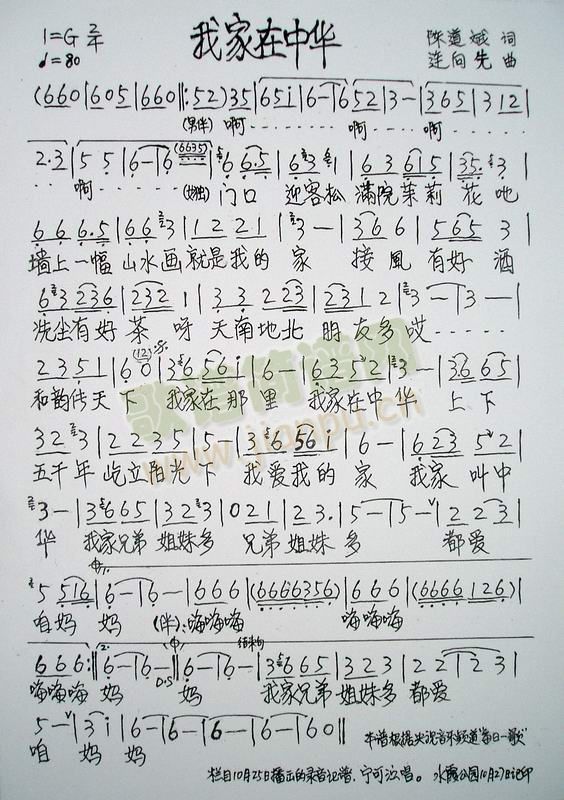 1=G 2/4 我家在中华 陈道斌 词
♩=80 连向先 曲
(660|605|660‖:52)35|65i|6-|652|3-|365|312|
(男伴) 啊 啊 啊
2·3|55|6-|6(6635)|66·5|6331|6365|35·3|
啊 (女独) 门口 迎客松 满院茉莉 花吔
666·5|663|1221|3-|366|5653|
墙上一幅 山水画 就是我的 家 接風有好 酒
63236|2321|3323|2312|3-|3-|
洗尘有好 茶呀 天南地北 朋友多哎
2351|60(12)|3656i|6-|63521|3-|3665|
和韵传天 下 我家在那 里 我家在中 华 上下
323|2235|5-|36561|6-|62352|
五千年 屹立阳光 下 我爱我的 家 我家叫中
3-|3665|323|021|23·|5-|5-|223|
华 我家兄弟 姐妹多 兄弟 姐妹多 都爱
5516|6-|6-|666|(6666356)|666|(6666126)|
咱妈 妈 (伴):嗨嗨嗨 嗨嗨嗨
666:‖6-|6-‖6-|6-|3665|323|22|23|
D.S 结束句
嗨嗨嗨 妈 妈 我家兄弟 姐妹多 都爱
5-|3i|6-|6-|6-|6-|60‖
咱 妈妈 本谱根据央视音乐频道"每日一歌"
栏目10月25日播出的录音记谱,宁可泣唱。 水霞公园10月27日记印
歌谱简谱网
www.jianpu.cn